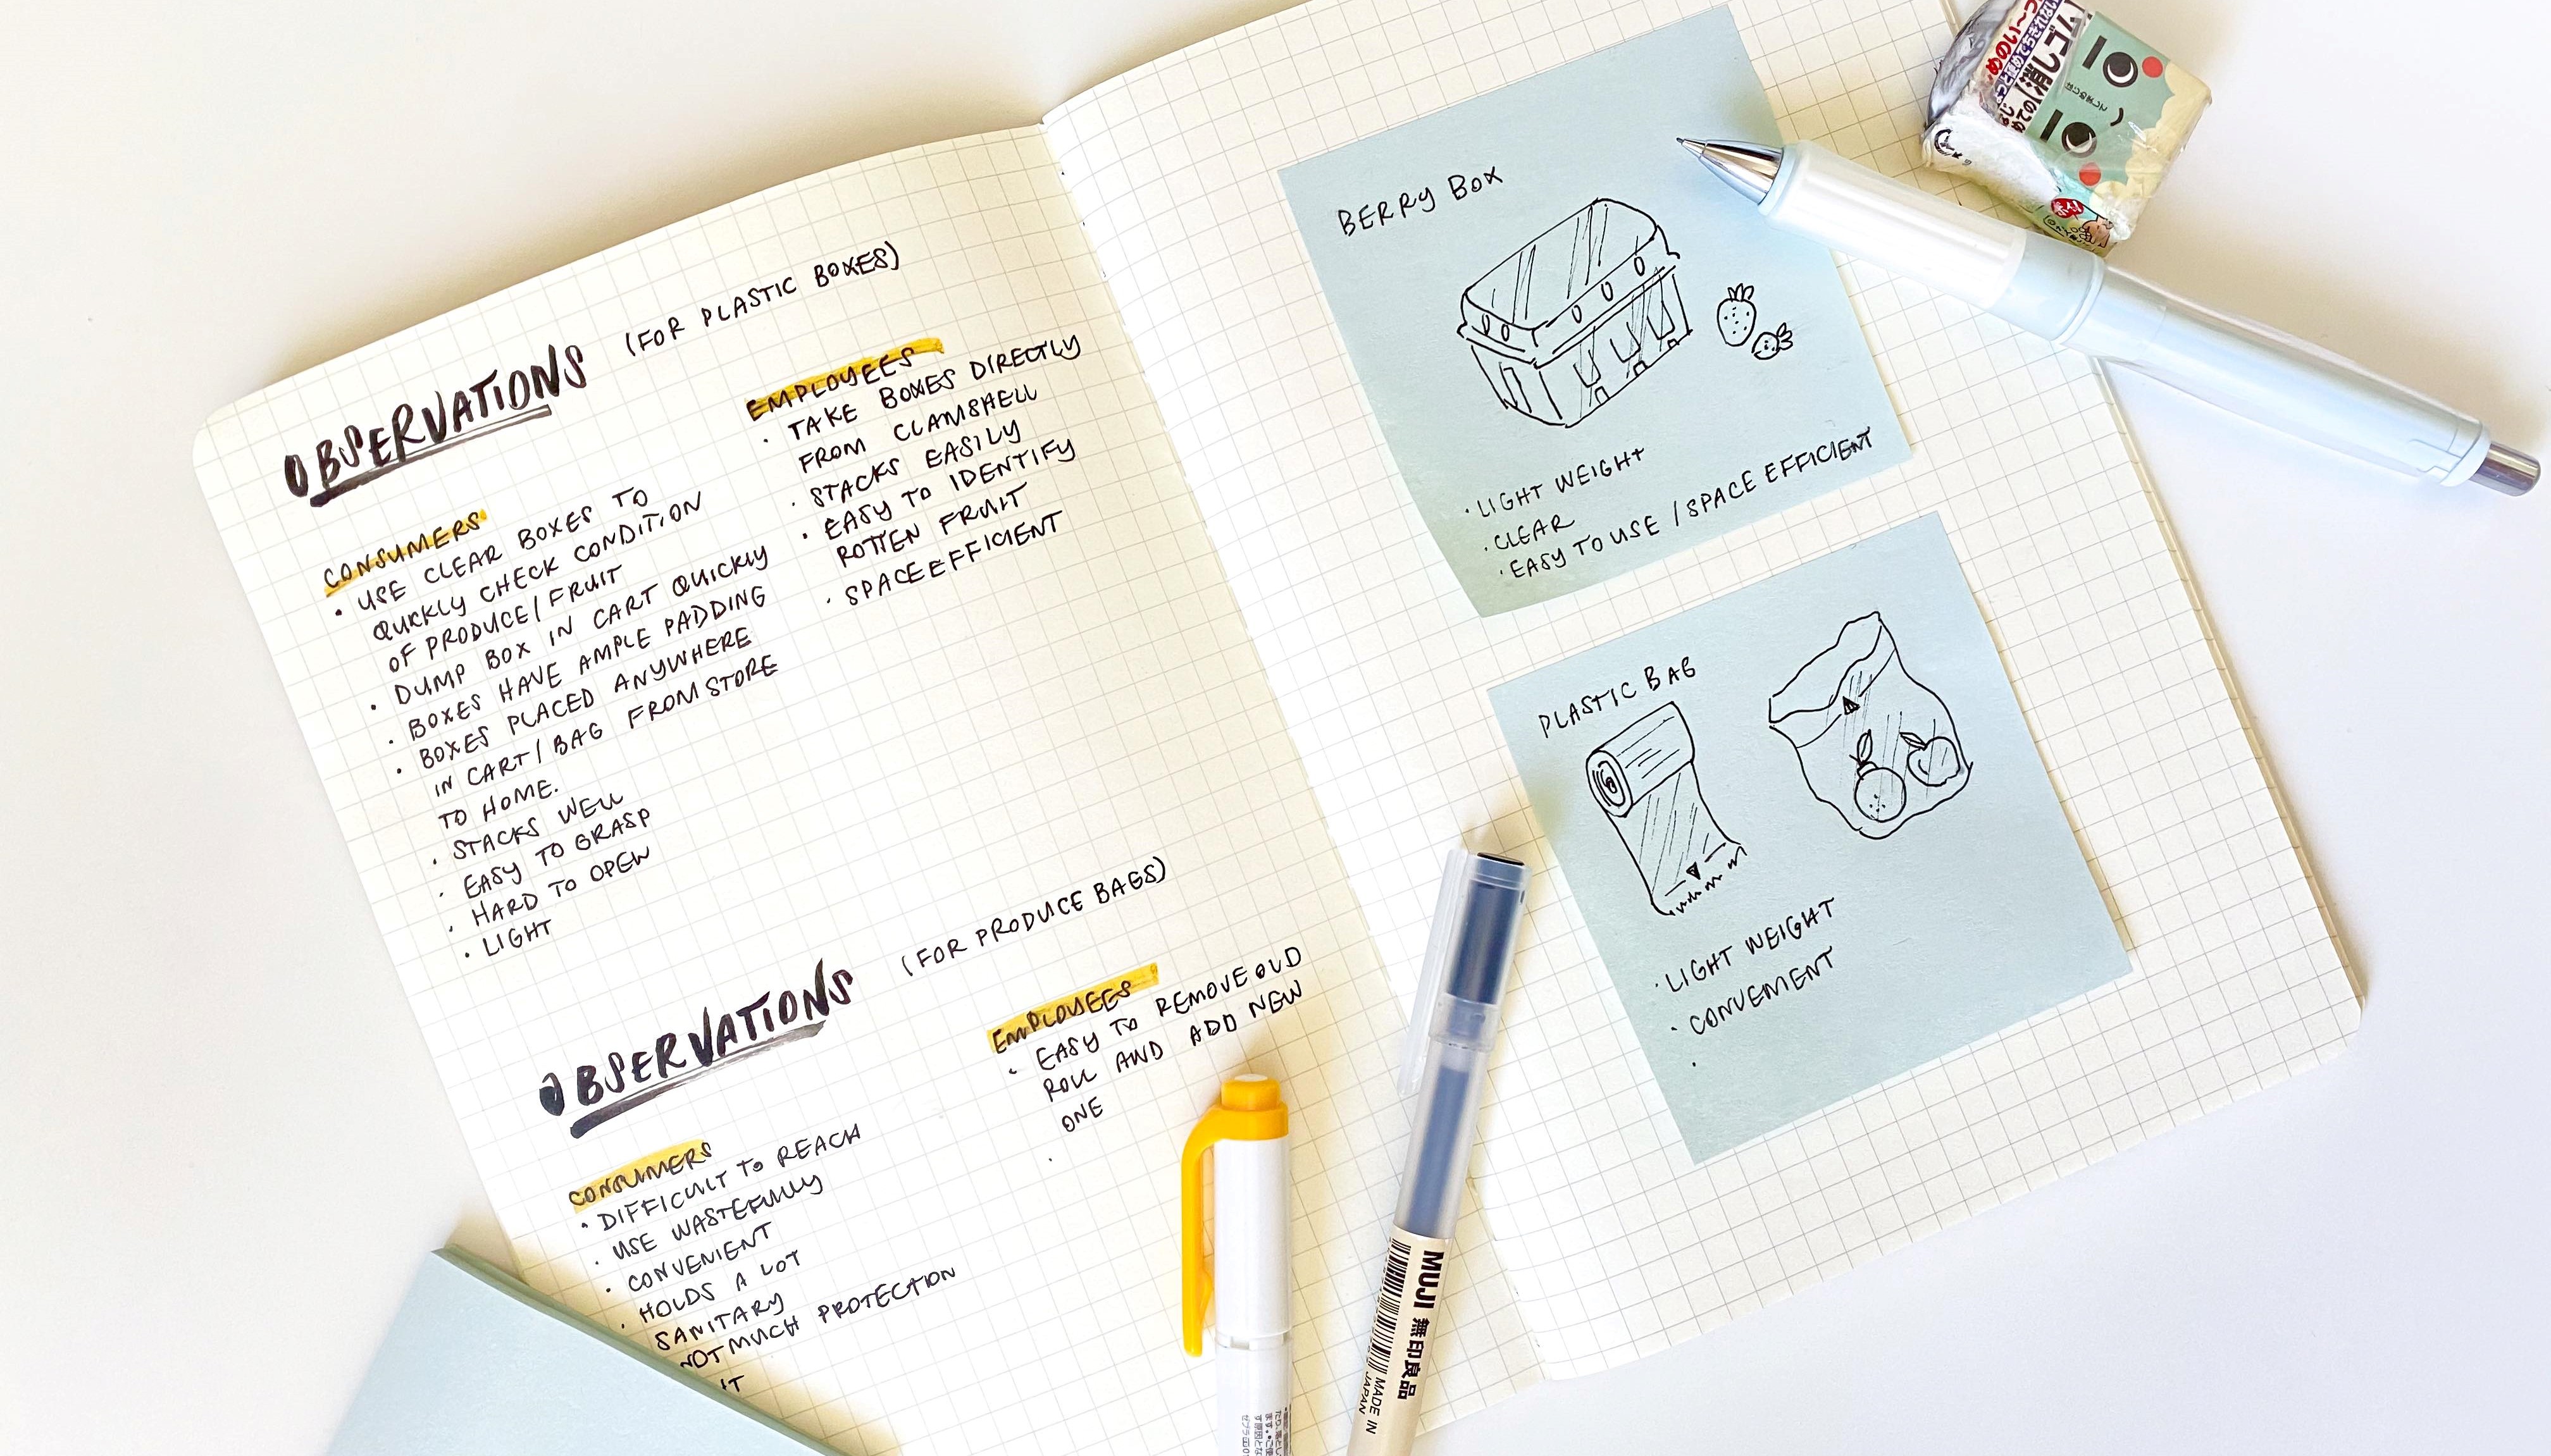 OBSERVATIONS (FOR PLASTIC BOXES)
CONSUMERS
• USE CLEAR BOXES TO
QUICKLY CHECK CONDITION
OF PRODUCE/FRUIT
• DUMP BOX IN CART QUICKLY
• BOXES HAVE AMPLE PADDING
• BOXES PLACED ANYWHERE
IN CART/BAG FROM STORE
TO HOME.
• STACKS WELL
• EASY TO GRASP
• HARD TO OPEN
• LIGHT
EMPLOYEES
• TAKE BOXES DIRECTLY
FROM CLAMSHELL
• STACKS EASILY
• EASY TO IDENTIFY
ROTTEN FRUIT
• SPACE EFFICIENT
OBSERVATIONS (FOR PRODUCE BAGS)
CONSUMERS
• DIFFICULT TO REACH
• USE WASTEFULLY
• CONVENIENT
• HOLDS A LOT
SANITARY
NOT MUCH PROTECTION
EMPLOYEES
• EASY TO REMOVE OLD
ROLL AND ADD NEW
ONE
BERRY BOX
• LIGHT WEIGHT
• CLEAR
• EASY TO USE / SPACE EFFICIENT
PLASTIC BAG
• LIGHT WEIGHT
• CONVEMENT
MUJI 無印良品
MADE IN
JAPAN